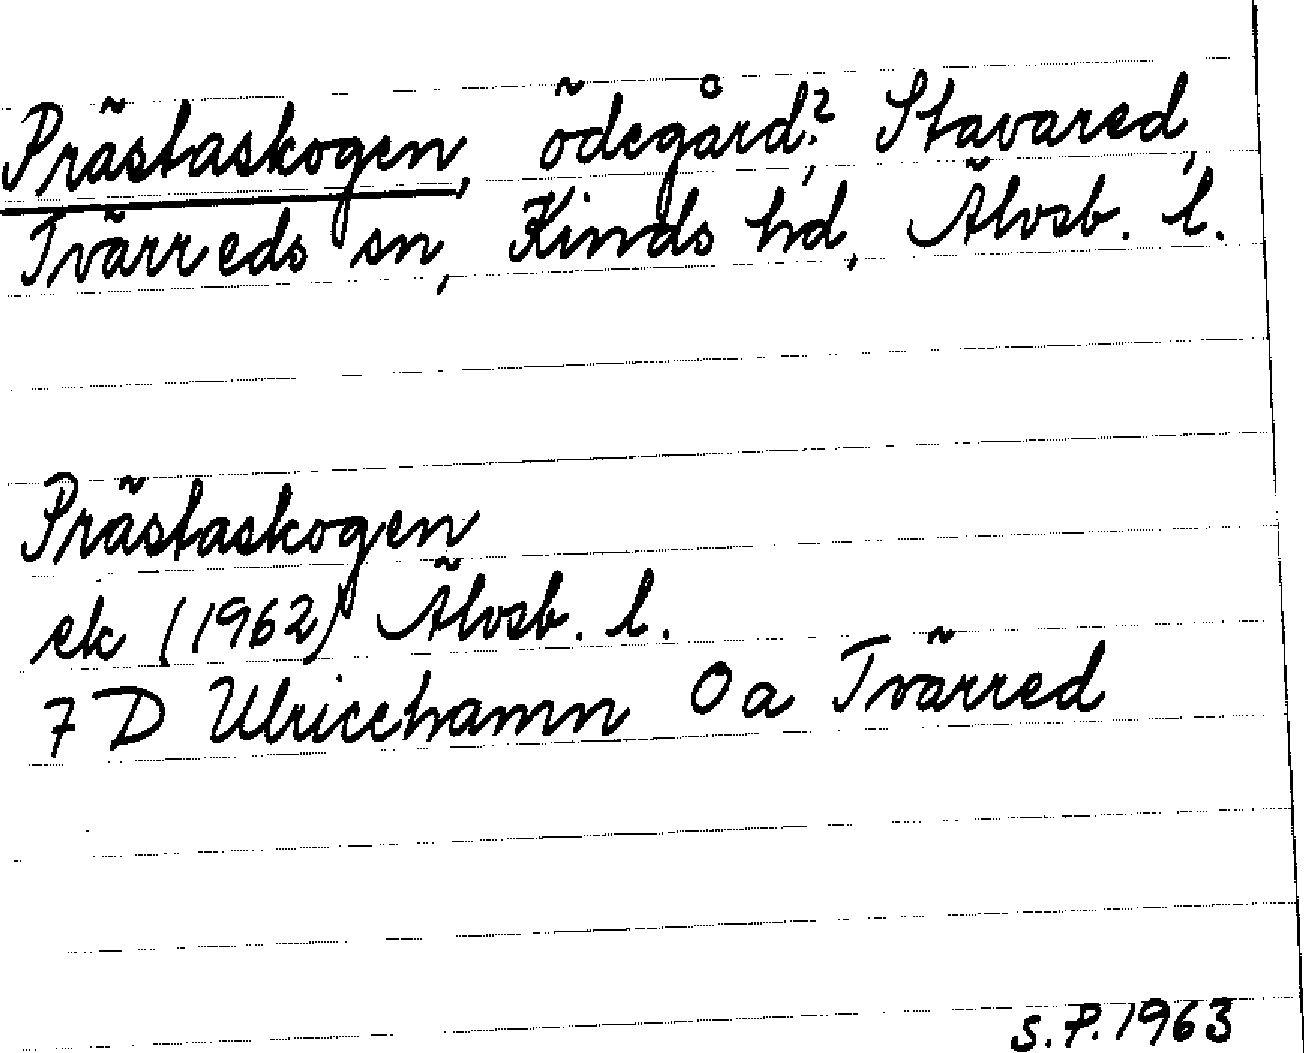 Prästaskogen, ödegård?, Stavared,
Tvärreds sn, Kinds hd, Älvsb. l.
Prästaskogen
ek (1962) Älvsb. l.
7 D Ulricehamn 0 a Tvärred
S.P. 1963